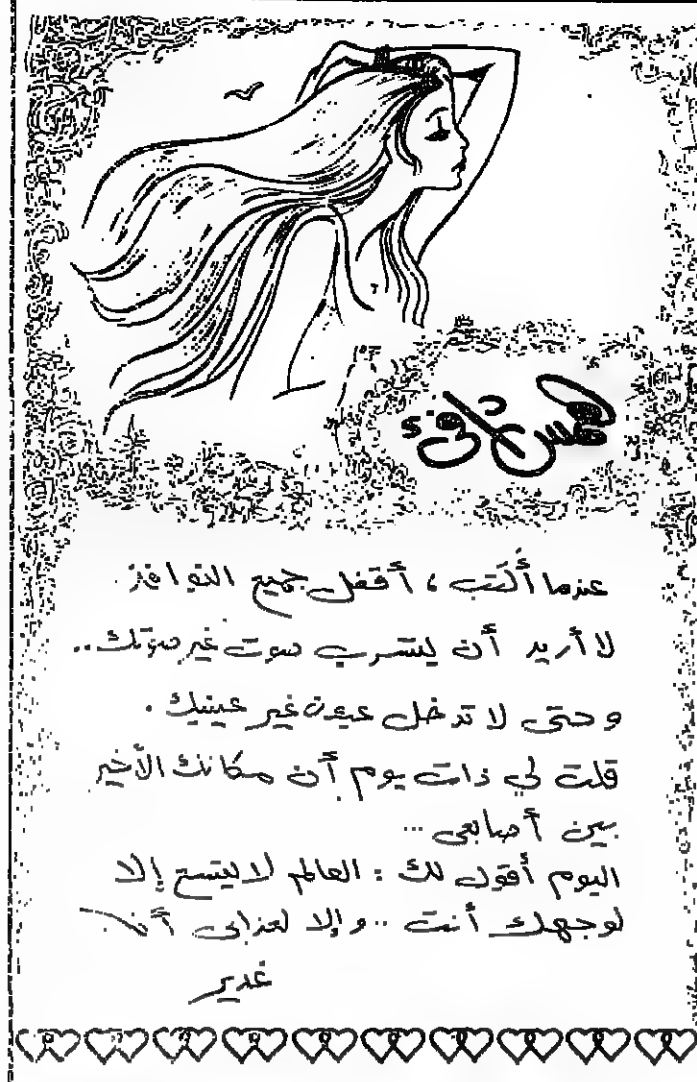 همس دافئ
عندما أكتب ، أقفل جميع النوافذ .
لا أريد أن يتسرب صوت غير صوتك ..
وحتى لا تدخل عيون غير عينيك .
قلت لي ذات يوم أن مكانك الأخير
بين أصابعي ...
اليوم أقول لك : العالم لا يتسع إلا
لوجهك أنت .. وإلا لعذابي أنا .
غدير